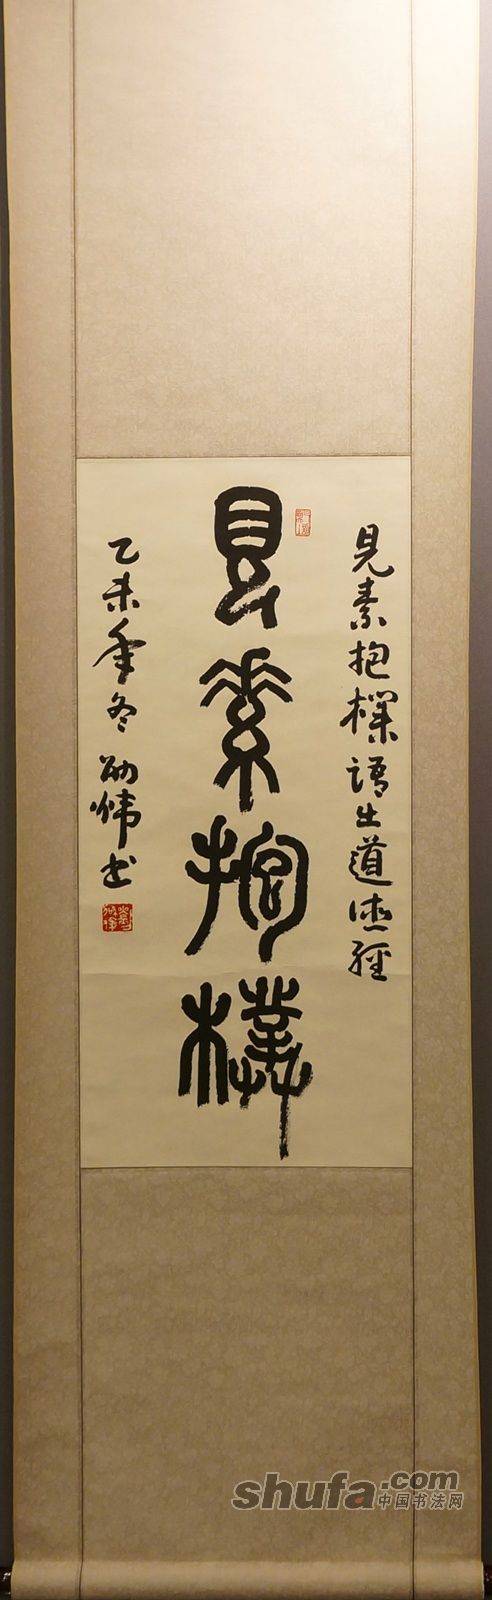 見素抱樸語出道德經
見素抱樸
乙未年冬劬煒書
shufa.com
中国书法网